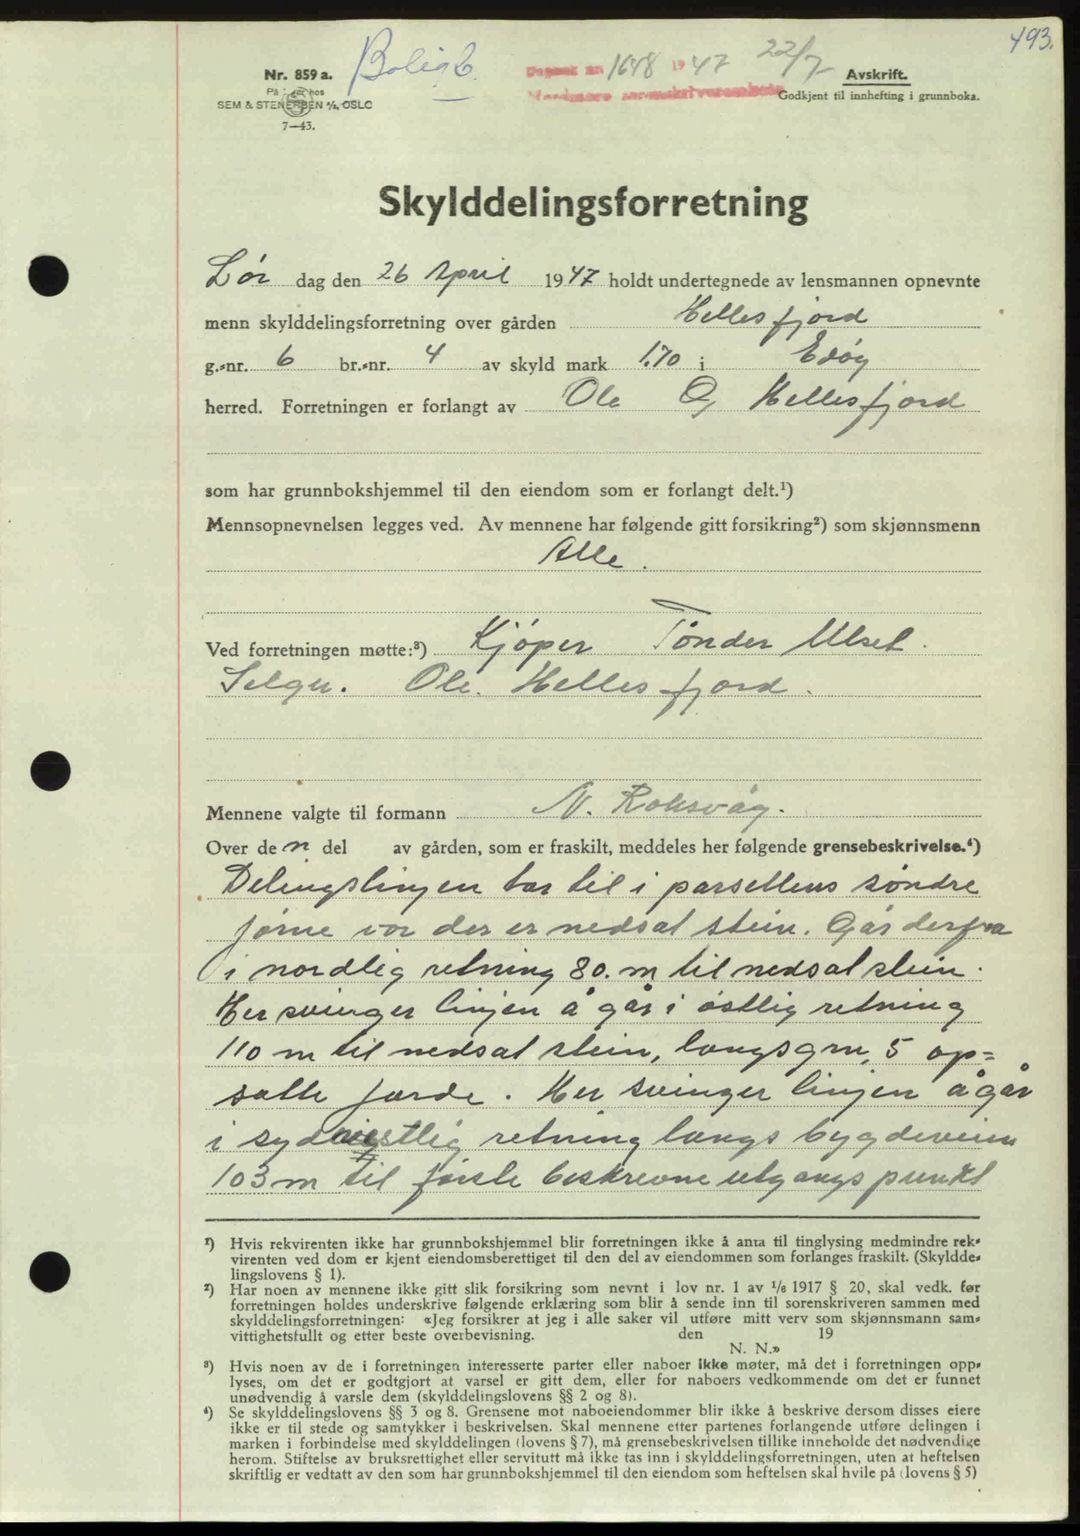 493.
Boligb.
Dagbok nr 1648 1947 22/7
Nr. 859 a.
På hos
SEM & STENERSEN A/S, OSLO
7—43.
Avskrift.
Godkjent til innhefting i grunnboka.
Skylddelingsforretning
Lør dag den 26 April 1947 holdt undertegnede av lensmannen opnevnte
menn skylddelingsforretning over gården Hellesfjord
g.-nr. 6 br.-nr. 4 av skyld mark 1.70 i Edøy
herred. Forretningen er forlangt av Ole O Hellesfjord
som har grunnbokshjemmel til den eiendom som er forlangt delt.¹)
Mennsopnevnelsen legges ved. Av mennene har følgende gitt forsikring²) som skjønnsmenn
Alle.
Ved forretningen møtte:³) Kjøper Tønder Ulset.
Selger. Ole. Hellesfjord.
Mennene valgte til formann N. Roksvåg.
Over den del av gården, som er fraskilt, meddeles her følgende grensebeskrivelse.⁴)
Delingslinjen tar til i parsellens søndre
jørne vor der er nedsat stein. Går derfra
i nordlig retning 80. m til nedsat stein.
Her svinger linjen å går i østlig retning
110 m til nedsat stein, langs 5 op=
satte . Her svinger linjen å går
i sydvestlig retning langs bygdeveien
103 m til første beskrevne utgangspunkt
¹) Hvis rekvirenten ikke har grunnbokshjemmel blir forretningen ikke å anta til tinglysing medmindre rek-
virenten ved dom er kjent eiendomsberettiget til den del av eiendommen som forlanges fraskilt. (Skyldde-
lingslovens § 1).
²) Har noen av mennene ikke gitt slik forsikring som nevnt i lov nr. 1 av 1/6 1917 § 20, skal vedk. før
forretningen holdes underskrive følgende erklæring som blir å sende inn til sorenskriveren sammen med
skylddelingsforretningen: «Jeg forsikrer at jeg i alle saker vil utføre mitt verv som skjønnsmann sam-
vittighetsfullt og etter beste overbevisning. den 19
N. N.»
³) Hvis noen av de i forretningen interesserte parter eller naboer ikke møter, må det i forretningen opp-
lyses, om det er godtgjort at varsel er gitt dem, eller for naboers vedkommende om det er funnet
unødvendig å varsle dem (skylddelingslovens §§ 2 og 8).
⁴) Se skylddelingslovens §§ 3 og 8. Grensene mot naboeiendommer blir ikke å beskrive dersom disses eiere
ikke er til stede og samtykker i beskrivelsen. Skal mennene etter partenes forlangende utføre delingen i
marken i forbindelse med skylddelingen (lovens § 7), må grensebeskrivelsen tillike inneholde det nødvendige
herom. Stiftelse av bruksrettighet eller servitutt må ikke tas inn i skylddelingsforretningen, uten at heftelsen
skriftlig er vedtatt av den som har grunnbokshjemmel til den eiendom som heftelsen skal hvile på (lovens § 5)